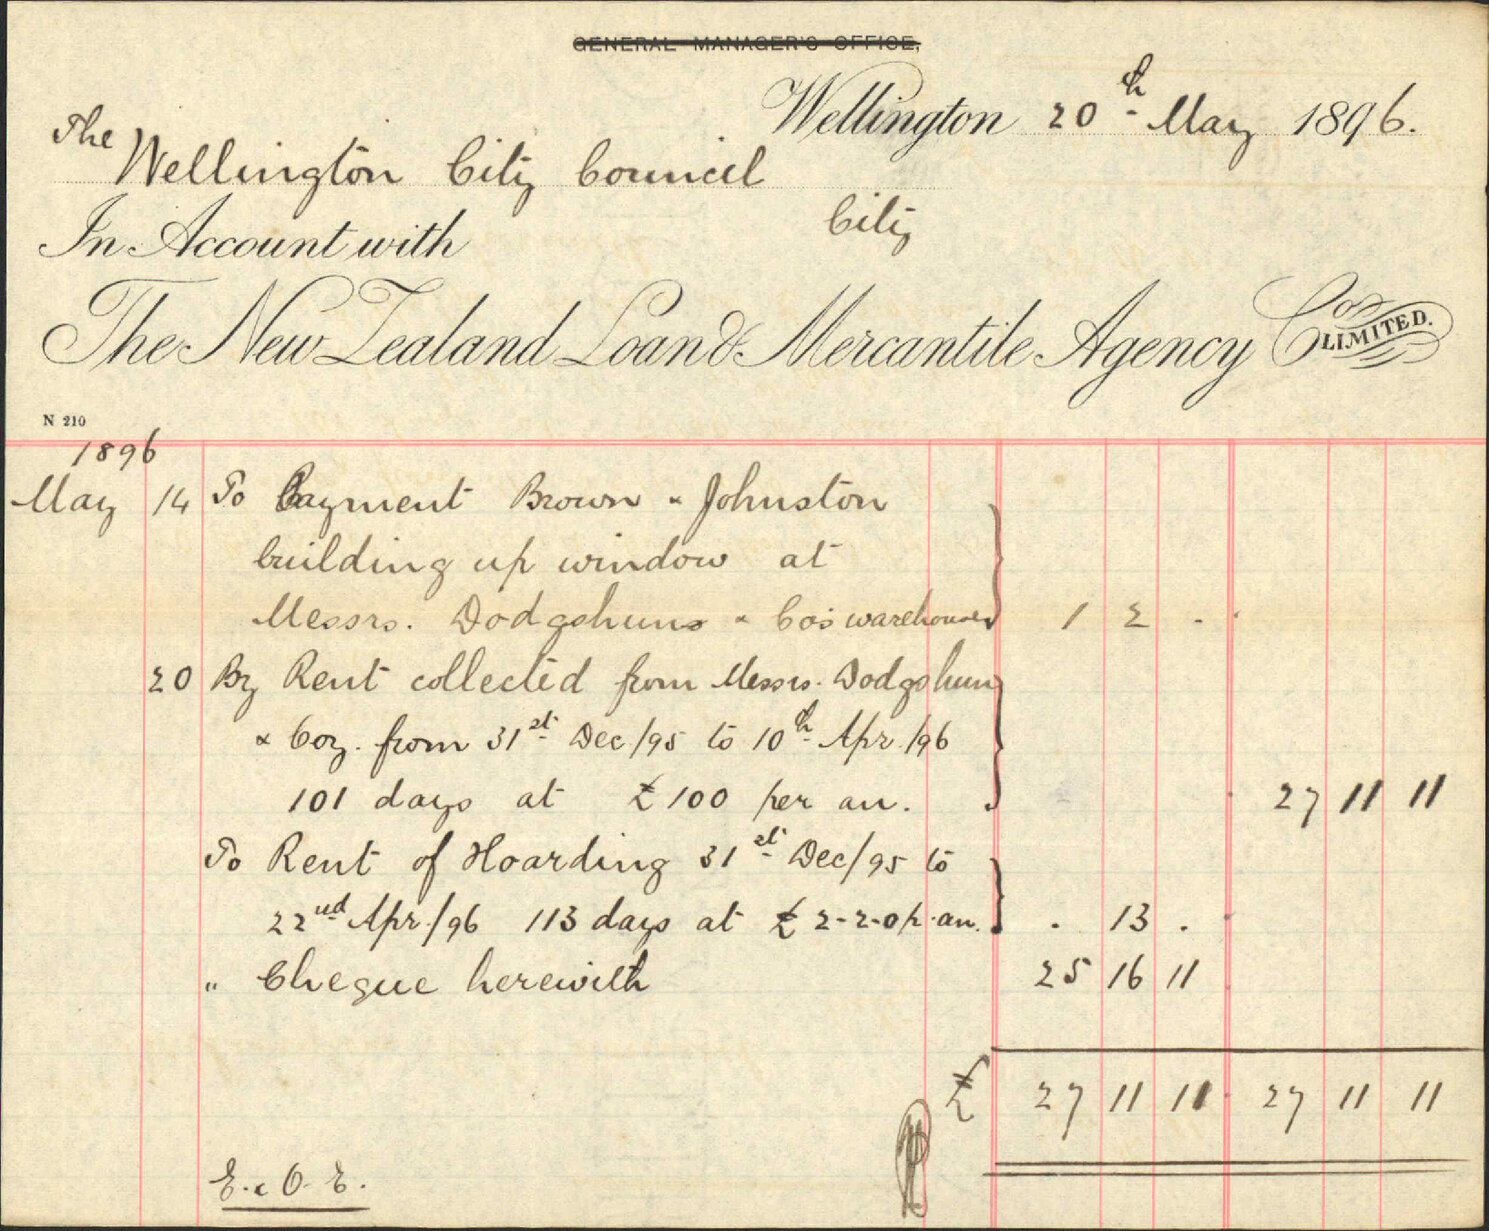 GENERAL MANAGER'S OFFICE,
Wellington 20th May 1896.
The Wellington City Council
City
In Account with
The New Zealand Loan & Mercantile Agency Coy LIMITED.
N 210
1896
May 14 To Payment Brown & Johnston
building up window at
Messrs. Dodgshuns & Co's warehouse 1 2 .
20 By Rent collected from Messrs. Dodgshun
& Coy. from 31st Dec/95 to 10th Apr./96
101 days at £100 per an. 27 11 11
To Rent of Hoarding 31st Dec/95 to
22nd Apr./96 113 days at £2-2-0 p. an. . 13 .
" Cheque herewith 25 16 11
£ 27 11 11 27 11 11
E. & O. E.